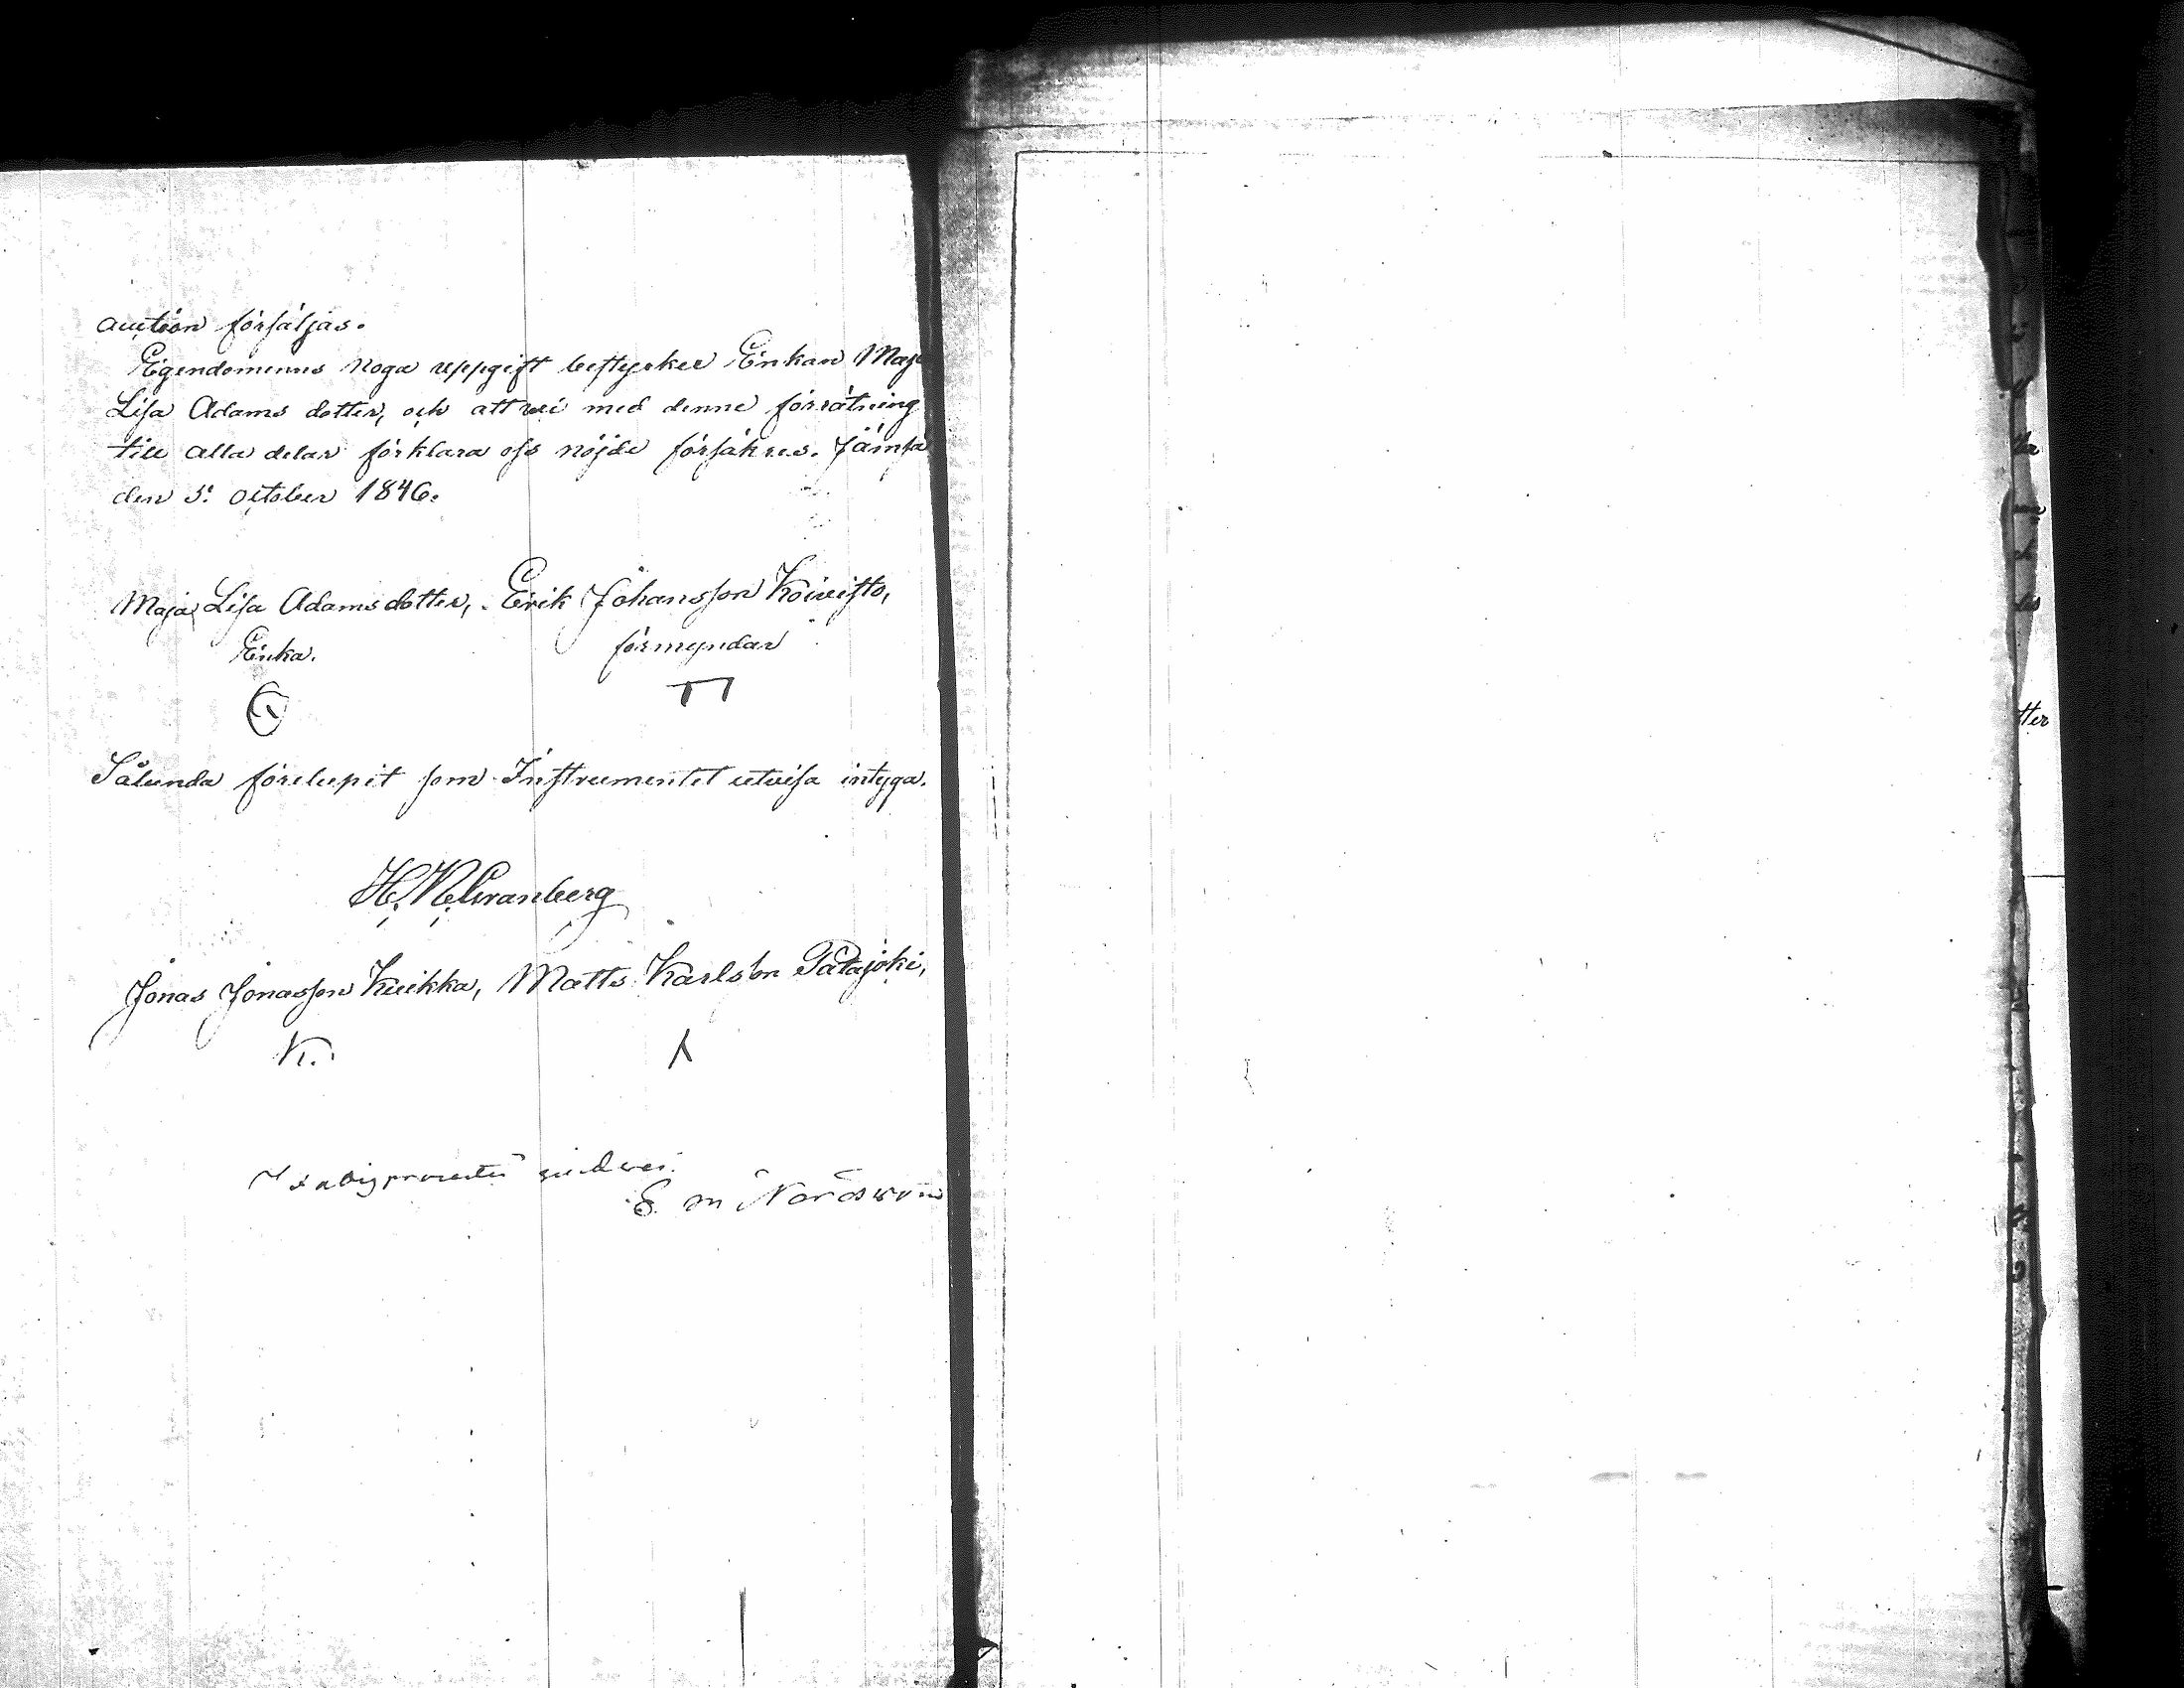 auction försäljas.
Egendomens noga uppgift bestyrker Enkan Maja
Lisa Adams dotter, och att wi med denne förrätning
till alla delar förklara oss nöjde försäkres. Jämsä
den 5: october 1846.
Maja Lisa Adamsdotter, Erik Johansson Koivisto,
Enka. förmyndar
Sålunda förelupit som Instrumentet utvisa intyga.
Jonas Jonasson Kuikka, Matts Karlsson Patajoki,
K.
E m
tter